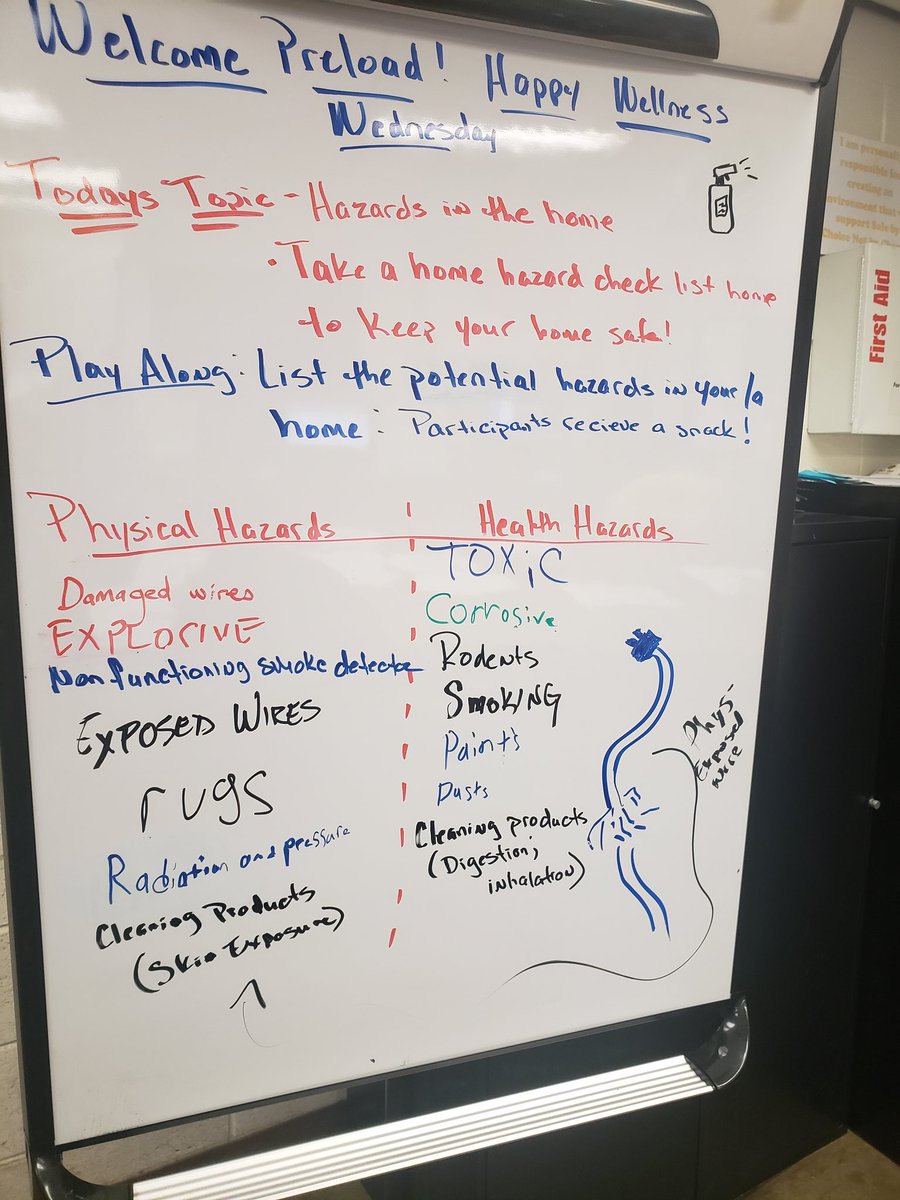 Welcome Preload! Happy Wellness
Wednesday
Todays Topic - Hazards in the home
• Take a home hazard check list home
to Keep your home safe!
Play Along: List the potential hazards in your/a
home: Participants recieve a snack!
Physical Hazards
Damaged wires
EXPLOSIVE
Non functioning smoke detector
EXPOSED WIRES
rugs
Radiation and pressure
Cleaning Products
(Skin Exposure)
Health Hazards
TOXiC
Corrosive
Rodents
SMOKING
Paints
Dusts
Cleaning products
(Digestion;
inhalation)
Phys-
Exposed
wire
I am personally
responsible
creating an
environment that
support Safe by
Choice Not by
First Aid